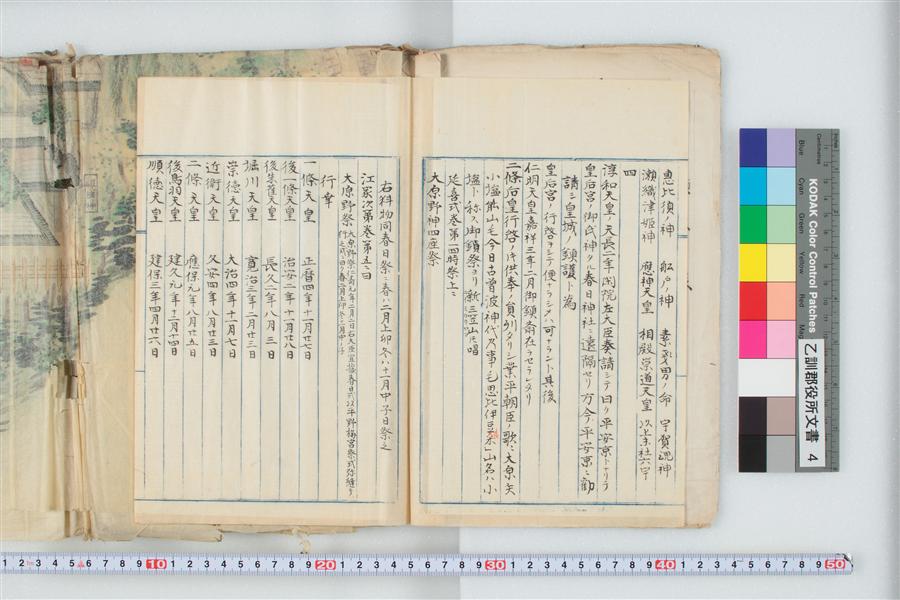 恵比須ノ神 船戸ノ神 素戔男ノ命 宇賀魂神
瀬織津姫神 應神天皇 相殿崇道天皇 以上末社六宇
四
淳和天皇ノ天長二年閑院左大臣奏請シテ曰リ平安京トナリテ
皇后宮ノ御氏神タル春日神社ニ遠隔セリ方今平安京ニ勧
請シ皇城ノ鎮護ト為
皇后宮ノ行啓ヲシテ便ナラシタハ可ナラント其後
仁明天皇嘉祥三年二月御鎮斎在ラセラレタリ
二條后皇行啓ノ時供奉ノ員列タリシ業平朝臣ノ歌ニ大原矢
小塩能山毛今日古曽波神代乃事毛思比伊豆米 山名ハ小
塩ト称ス御鎮祭ヨリ漸ニ三笠山氏唱
延喜式巻第一四時祭上ニ
大原野神四座祭
右料物同春日祭ニ春ハ二月上卯冬ハ十一月中子日祭之
江家次第巻第五ニ曰
大原野祭
行幸
一條天皇 正暦四年十一月廿七日
後一條天皇 治安二年十一月廿八日
後朱雀天皇 長久二年八月三日
堀川天皇 寛治三年二月廿三日
崇徳天皇 大治四年十一月七日
近衛天皇 久安四年八月廿三日
二條天皇 應保元年八月廿五日
後鳥羽天皇 建久元年十二月十四日
順徳天皇 建保三年四月廿六日
KODAK Color Control Patches
Blue Cyan Green Yellow Red Mag
Centimetres
乙訓郡役所文書 4
1 2 3 4 5 6 7 8 9 10 1 2 3 4 5 6 7 8 9 20 1 2 3 4 5 6 7 8 9 30 1 2 3 4 5 6 7 8 9 40 1 2 3 4 5 6 7 8 9 50